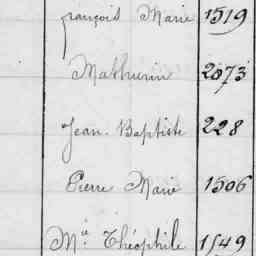 françois Marie 1519
Mathurin 2073
Jean-Baptiste 228
Pierre Marie 1506
Mie Théophile 1549